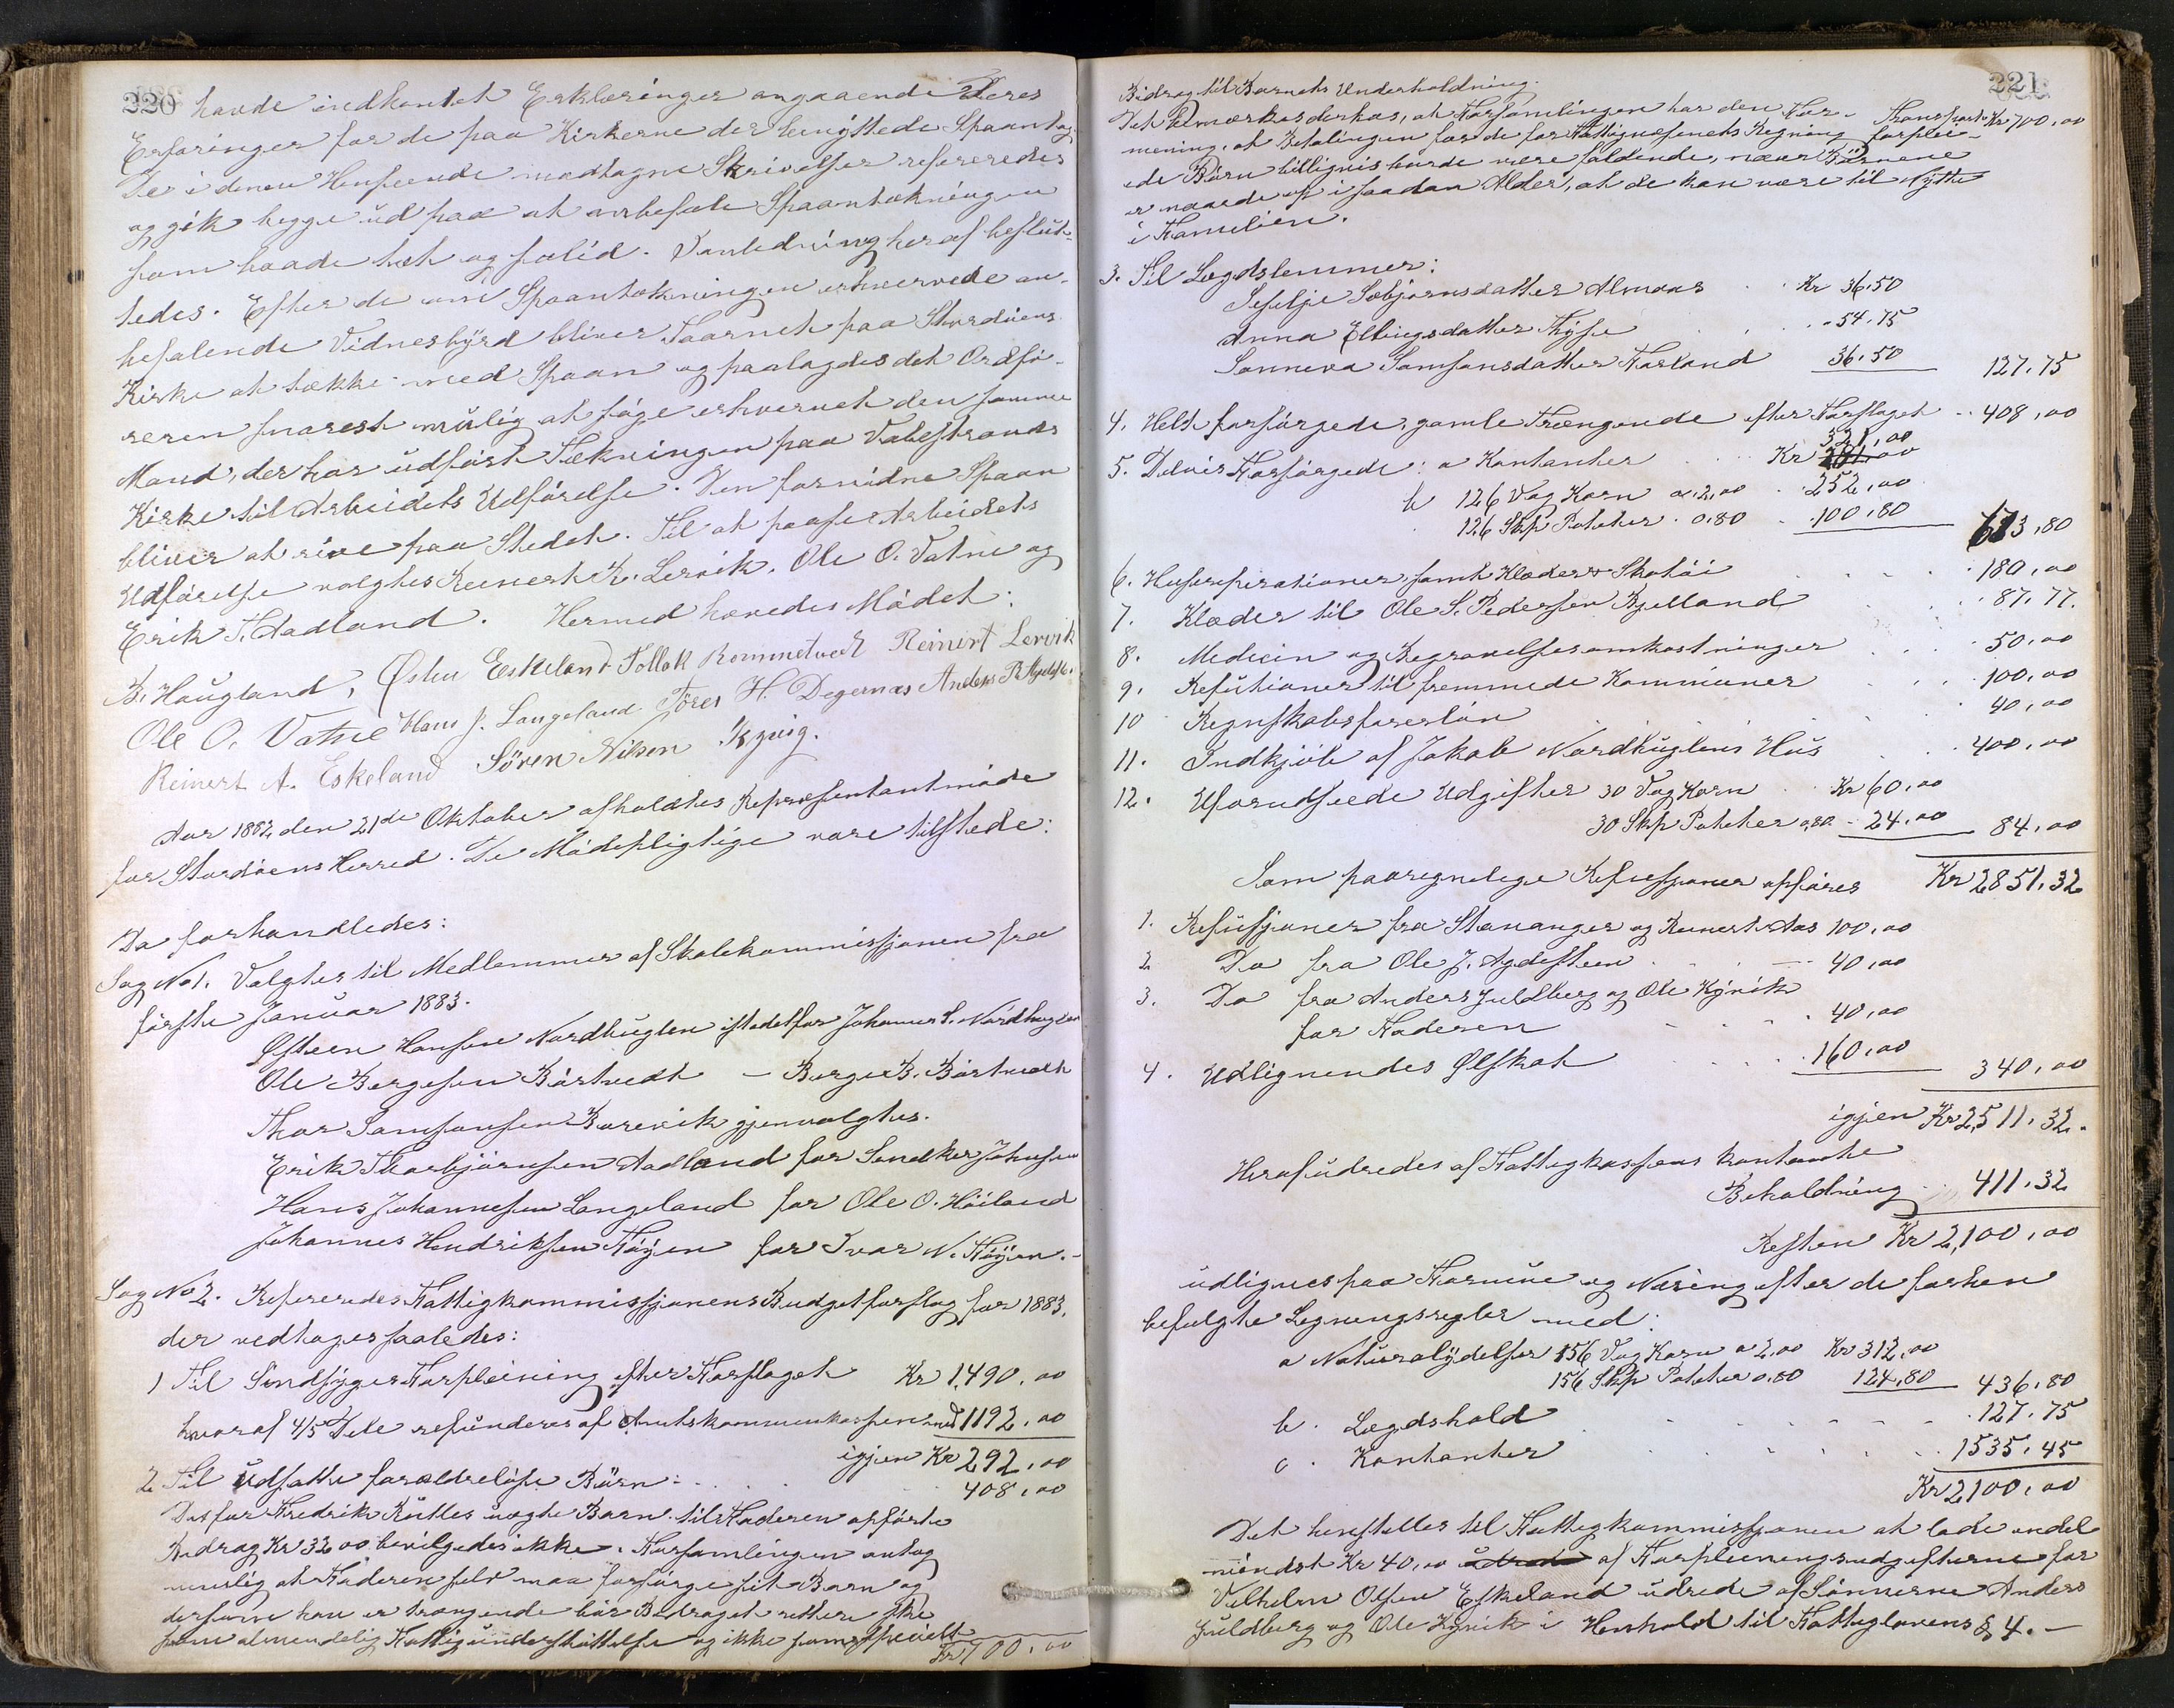 220
havde indhentet Erklæringer angaaende Deres
Erfaringer for de paa Kirkerne der benyttede Spaantag
De i denne Henseende modtagne Skrivelser refereredes
og gik begge ud paa at anbefale Spaantækningen
som baade tæt og solid. I anledning heraf beslut-
tedes. Efter de om Spaantækningen erhvervede an-
befalende Vidnesbyrd bliver Taarnet paa Stordøens
Kirke at tække med Spaan og paalagdes det Ordfø-
reren snarest mulig at søge erhvervet den samme
Mand, der har udført Tækningen paa Valestrands
Kirke til Arbeidets Udførelse. Den fornødne Spaan
bliver at rive paa Stedet. Til at paase Arbeidets
Udførelse valgtes Reinert K. Lervik, Ole O. Vatne og
Erik T. Aadland. Hermed hævedes Mødet:
B. Haugland, Østen Eskeland Tollak Rommetvedt Reinert Lervik
Ole O. Vatne Hans J. Langeland Tøres H. Digernæs Anders R
Reinert A. Eskeland Søren Nilsen Kyvig.
Aar 1882 den 21de Oktober afholdtes Repræsentantmøde
for Stordøens Herred. De Mødepligtige vare tilstede:
Da forhandledes:
Sag No 1. Valgtes til Medlemmer af Skolekommissjonen fra
første Januar 1883.
Østen Hansen Nordhuglen istedetfor Johannes S. Nordhuglen
Ole Børgesen Børtvedt – Børge B. Børtvedt
Thor Samsonsen Borevik gjenvalgtes.
Erik Thorbjørnsen Aadland for Sondker Johnsen
Hans Johannesen Langeland for Ole O. Høiland
Johannes Hendriksen Føyen for Ivar N. Føyen.-
Sag No 2. Refereredes Fattigkommissjonens Budgetforslag for 1883.
der vedtoges saaledes:
1 Til Sindsyges Forpleining efter Forslaget Kr 1,490.00
hvoraf 4/5 Dele refunderes af Amtskommunekassen med 1192.00
igjen Kr 292.00
2. Til udsatte forældreløse Børn: 408.00
Det for Fredrik Rütles uægte Barn til Faderen opførte
Bidrag Kr 32.00 bevilgedes ikke. Forsamlingen antog
nemlig at Faderen selv maa forsørge sit Barn og
dersom han er trængende bør Bidraget rettere ske
som almendelig Fattigunderstøttelse og ikke som specielt
Kr 700.00
221
Bidrag til Barnets Underholdning.
Det bemærkes derhos, at Forsamlingen har den For- Transport Kr 700,00
mening, at Betalingen for de for Fattigvæsenets Regning forplei-
ede Børn billigvis burde være faldende, naar Børnene
er naaede op i saadan Alder, at de kan være til Nytte
i Familien.
3. Til Lægdslemmer:
Sesselje Sæbjørnsdatter Almaas Kr 36.50
Anna Ellingsdatter Thyse - 54.75
Sønneva Samsonsdatter Førland 36.50 127.75
4. Helt forsørgede, gamle Trængende efter Forslaget - 408,00
321,00
5. Delvis Forsørgede: a Kontanter Kr 281.00
b 126 Vog Korn a 2,00 252,00
126 Skp Poteter 0.80 100.80 673,80
6. Husreperationer, samt Klæder & Skotøi 180,00
7. Klæder til Ole S. Pedersen Bjelland 87.77.
8. Medicin og Begravelsesomkostninger 50.00
9. Refutioner til fremmede Kommuner 100,00
10 Regnskabsførerløn 40,00
11. Indkjøb af Jakob Nordhuglens Hus 400,00
12. Uforudseede Udgifter 30 Vog Korn Kr 60,00
30 Skp Poteter 0,80 24,00 84,00
Som paaregnelige Refusjoner opføres Kr 2851.32
1. Refusjoner fra Stavanger og Reinert Aas 100,00
2 Do fra Ole J. Agdesteen 40,00
3. Do fra Anders Juldberg og Ole Kyvik
for Faderen 40,00
4. Udlignendes Ølskat 160,00 340,00
igjen Kr 2,511.32.
Heraf udredes af Fattigkassens kontante
Beholdning 411.32
Resten Kr 2,100,00
udlignes paa Formue og Næring efter de forhen
befulgte Ligningsregler med:
a Naturalydelser 156 Vog Korn a 2,00 Kr 312,00
156 Skp Poteter 0.80 124,80 436,80
b. Lægdshold 127.75
c. Kontanter 1535.45
Kr 2,100,00
Det henstilles til Fattigkommissjonen at lade endel
mindst Kr 40,00 udrede af Forpleiningsudgifterne for
Vilhelm Olsen Eskeland udrede af Sønnerne Anders
Juldberg og Ole Kyvik i Henhold til Fattiglovens § 4.-